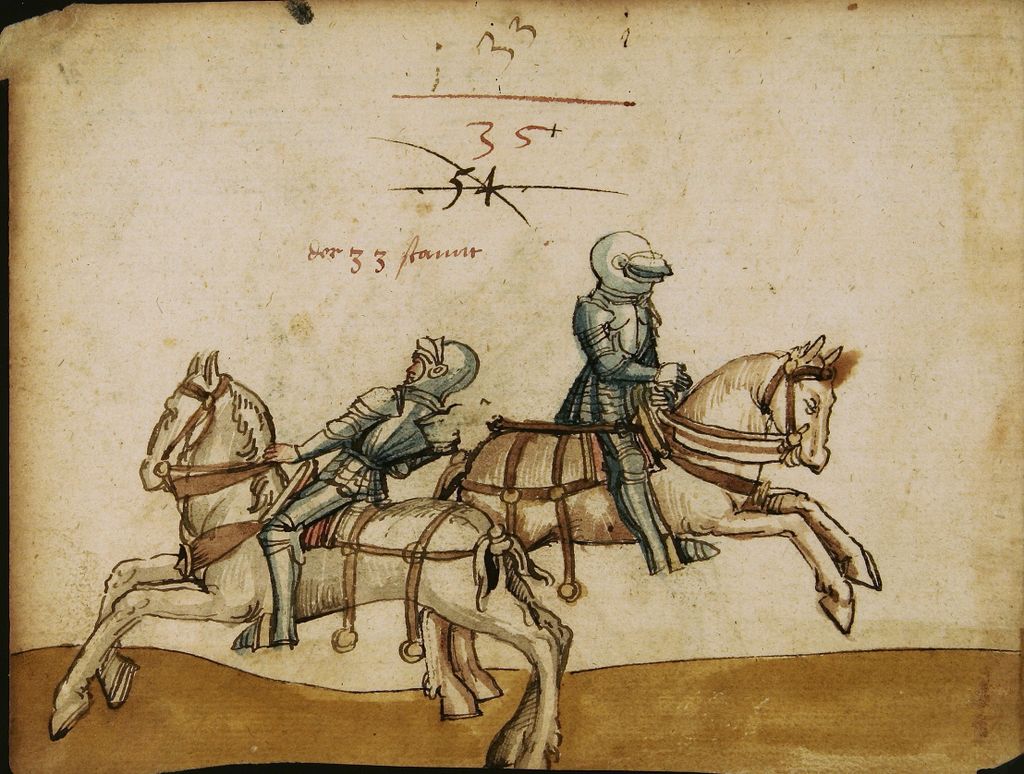 33
35
54
der 33 stantt